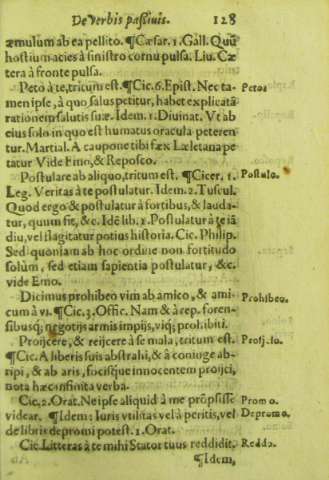 De verbis passiuis. 128
æmulum ab ea pellito. ¶Cæsar. 1. Gall. Quũ
hostiũ acies à sinistro cornu pulsa. Liu. Cæ
tera à fronte pulsa.
Peto à te, tritum est. ¶Cic. 6. Epist. Nec ta- Peto.
men ipse, à quo salus petitur, habet explicatã
rationem salutis suæ. Idem. 1. Diuinat. Vt ab
eius solo in quo est humatus oracula peteren
tur. Martial. A caupone tibi fæx Læletana pe
tatur Vide Emo, & Reposco.
Postulare ab aliquo, tritum est. ¶Cicer. 1. Postulo.
Leg. Veritas à te postulatur. Idem. 2. Tuscul.
Quod ergo & postulatur à fortibus, & lauda-
tur, quum fit, &c. Idẽ lib. 1. Postulatur à te iã
diu, vel flagitatur potius historia. Cic. Philip.
Sed quoniam ab hoc ordine non fortitudo
solùm, sed etiam sapientia postulatur, &c.
vide Emo.
Dicimus prohibeo vim ab amico, & ami- Prohibeo.
cum à vi. ¶Cic. 3. Offic. Nam & à rep. foren-
sibusq; negotijs armis impijs, viq; prohibiti.
Proijcere, & reijcere à se mala, tritum est. Proijcio.
¶Cic. A liberis suis abstrahi, & à coniuge ab-
ripi, & ab aris, focisque innocentem proijci,
nota hæc infinita verba.
Cic. 2. Orat. Ne ipse aliquid à me prõpsisse Promo.
videar. ¶Idem: Iuris vtilitas vel à peritis, vel Depromo.
de libris depromi potest. 1. Orat.
Cic. Litteras à te mihi Stator tuus reddidit. Reddo.
¶Idem,